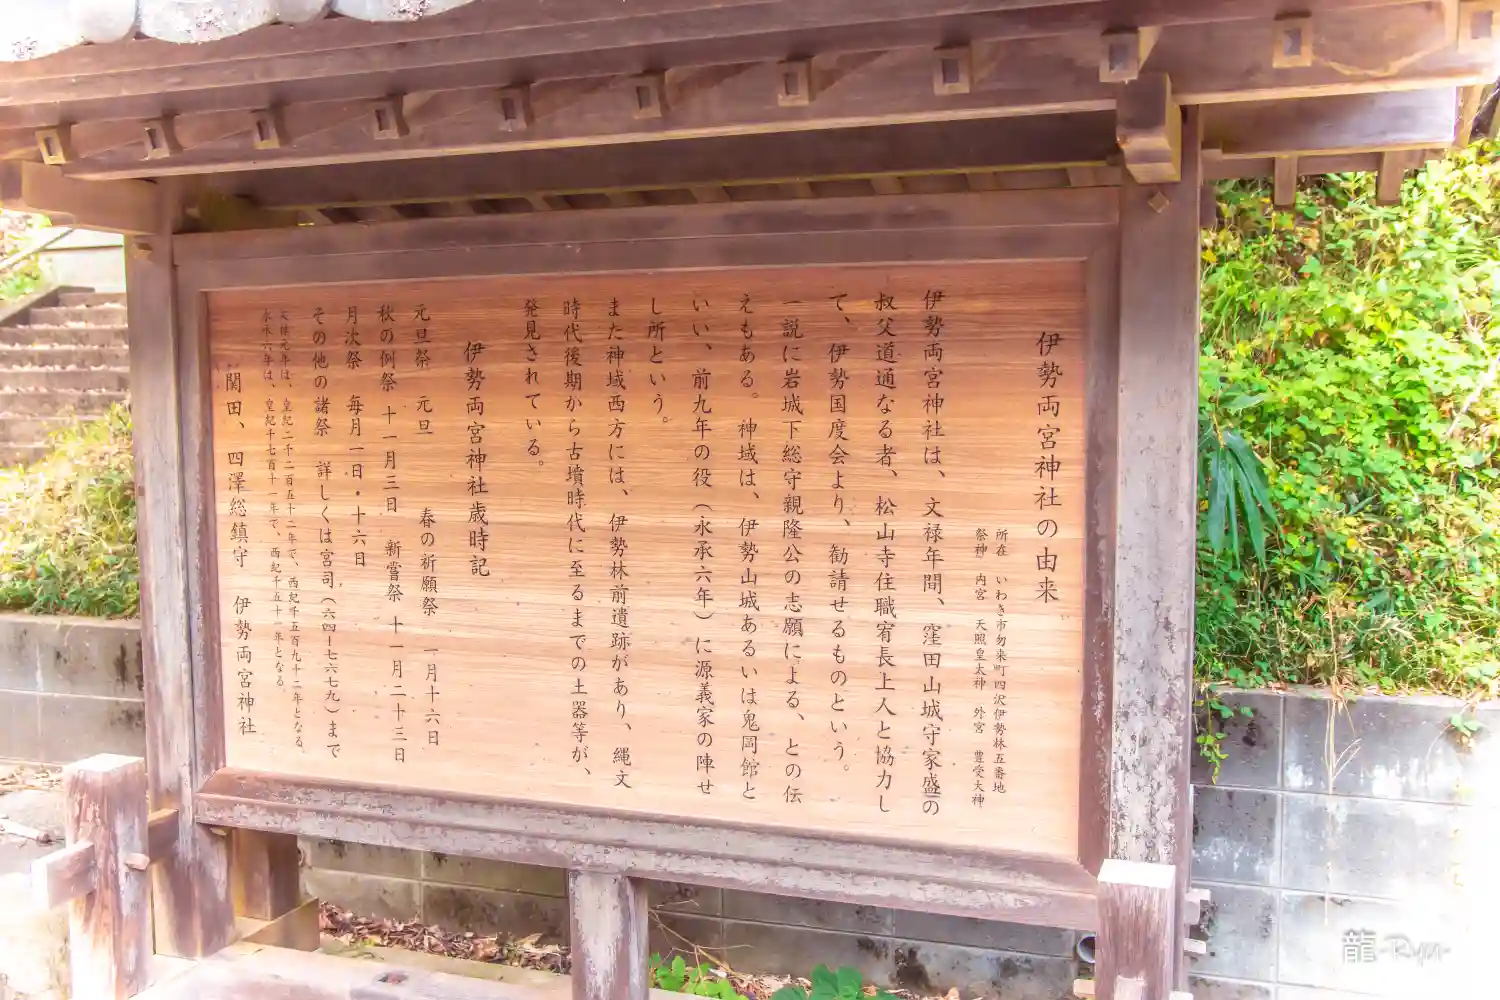 伊勢両宮神社の由来
所在 いわき市勿来町四沢伊勢林五番地
祭神 内宮 天照皇太神 外宮 豊受大神
伊勢両宮神社は、文禄年間、窪田山城守家盛の
叔父道通なる者、松山寺住職宥長上人と協力し
て、伊勢国度会より、勧請せるものという。
一説に岩城下総守親隆公の志願による、との伝
えもある。神域は、伊勢山城あるいは鬼岡館と
いい、前九年の役(永承六年)に源義家の陣せ
し所という。
また神域西方には、伊勢林前遺跡があり、縄文
時代後期から古墳時代に至るまでの土器等が、
発見されている。
伊勢両宮神社歳時記
元旦祭 元旦 春の祈願祭 一月十六日
秋の例祭 十一月三日 新嘗祭 十一月二十三日
月次祭 毎月一日・十六日
その他の諸祭 詳しくは宮司(六四ー七六七九)まで
文禄元年は、皇紀二千二百五十二年で、西紀千五百九十二年となる。
永承六年は、皇紀千七百十一年で、西紀千五十一年となる。
関田、四澤総鎮守 伊勢両宮神社
龍-Ryu-